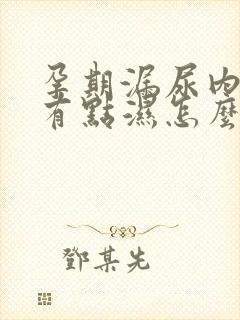 孕期漏尿內
有點濕怎麼
鄧某先